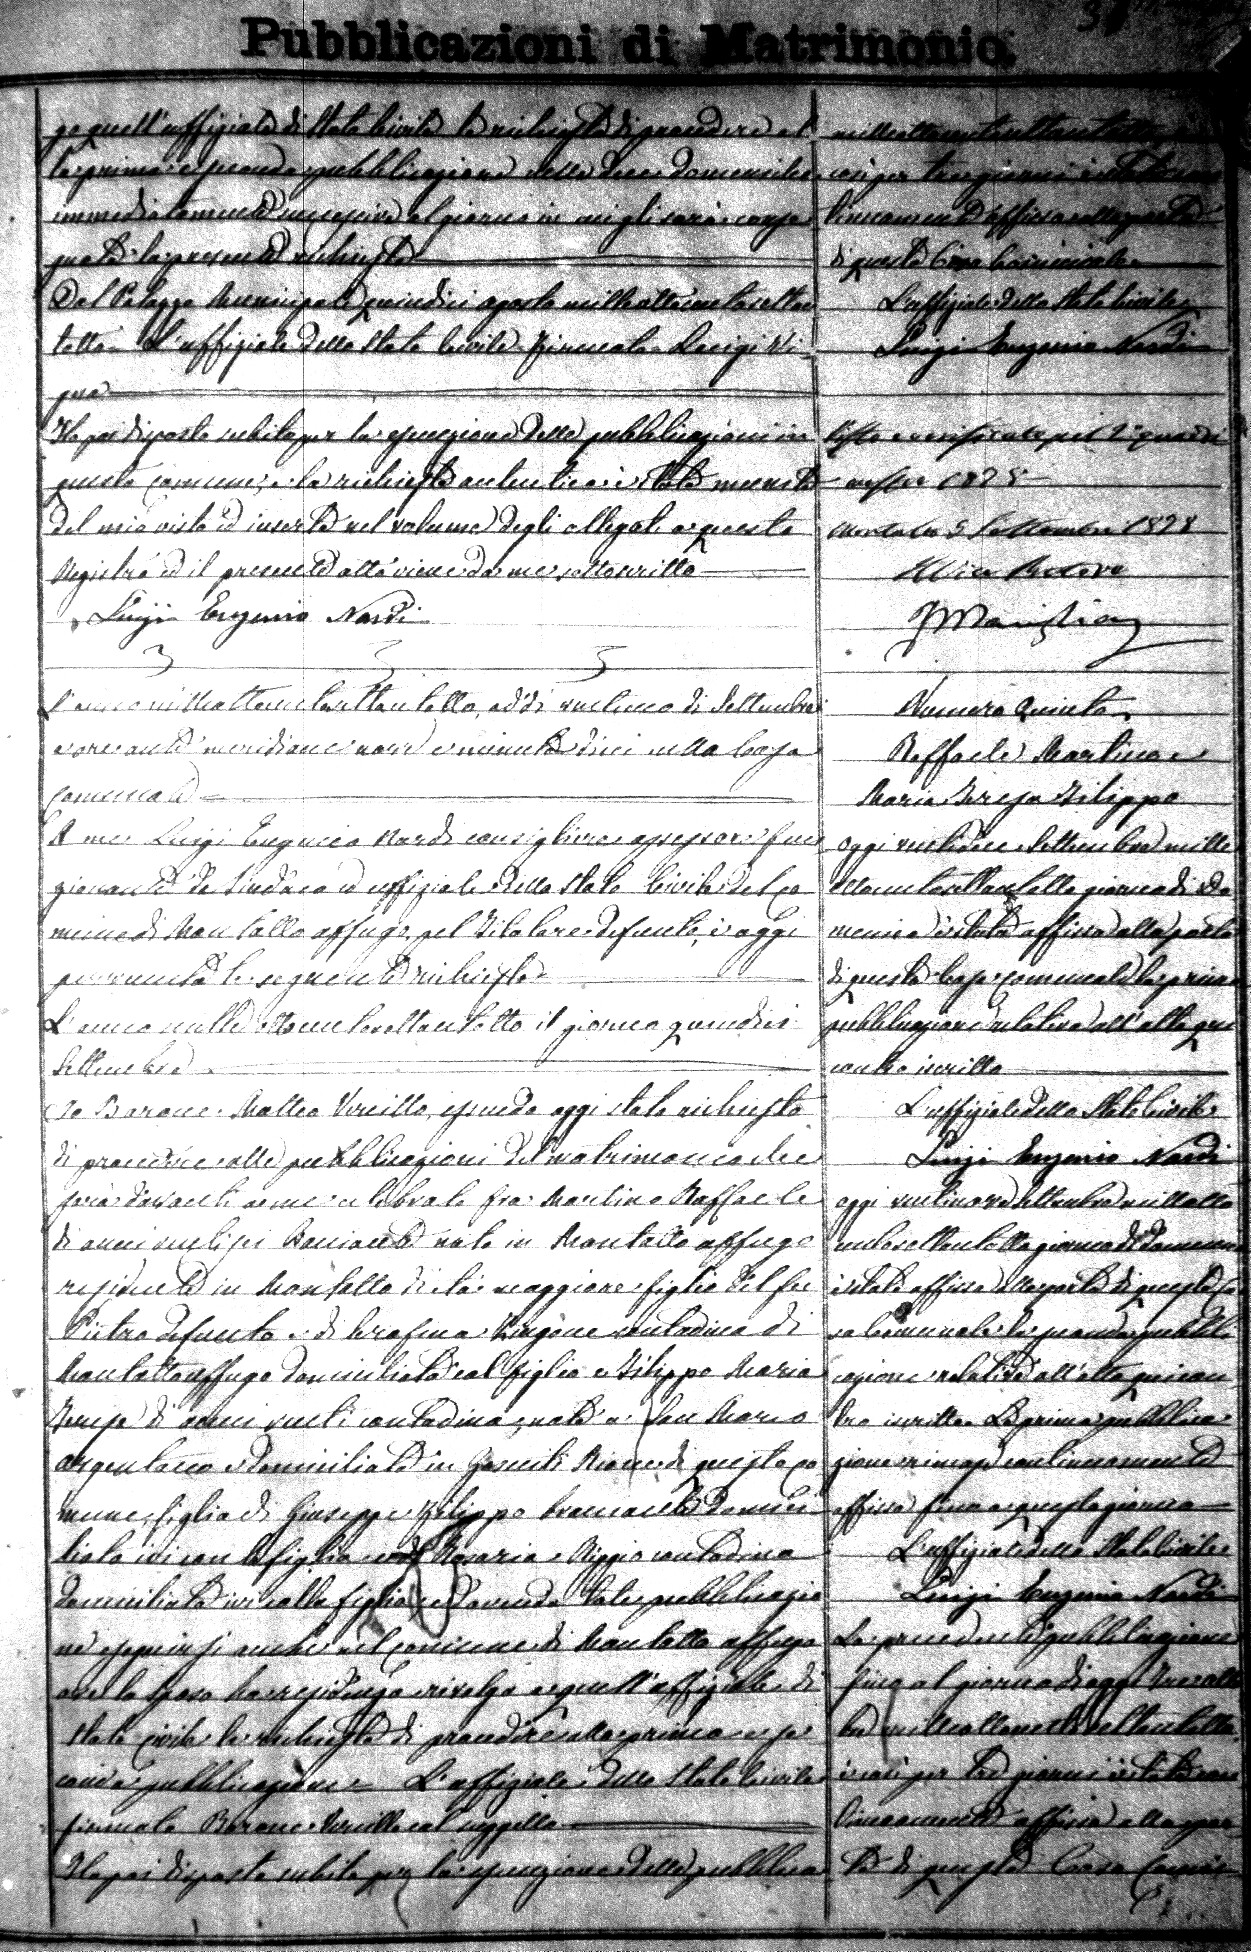 Pubblicazioni di Matrimonio
quell'uffiziale di Stato Civile la richiesta di procedere al
la prima e seconda pubblicazione nelle due domeniche
immediatamente successive al giorno in cui gli sarà conse
gnata la presente richiesta
Dal Palazzo Municipale quindici agosto mille ottocentosettan
totto L'uffiziale dello Stato Civile firmato Luigi Vi
Ho poi disposto subito per la esecuzione delle pubblicazioni in
questo comune, e la richiesta autentica è stata munita
del mio visto ed inserta nel volume degli allegati a questo
Registro ed il presente atto viene da me sottoscritto
Luigi Eugenio Nardi
L'anno mille ottocentosettantotto, addì ventuno di Settembre
a ore anti meridiane nove e minuti dieci nella Casa
Comunale
A me Luigi Eugenio Nardi consigliere assessore fun
zionante da Sindaco ed uffiziale dello Stato Civile del Co
mune di Montalto uffugo, pel titolare defunto, è oggi
pervenuta la seguente richiesta
L'anno mille ottocentosettantotto il giorno quindici
Settembre
Io Barone Matteo Vercillo, essendo oggi stato richiesto
di procedere alle pubblicazioni del matrimonio che
sarà davanti a me celebrato fra Martino Raffaele
di anni ventisei nato in Montalto uffugo
residente in Montalto di età maggiore figlio del fu
Pietro defunto e di Serafina contadina di
Montalto uffugo domiciliata col figlio e Filippo Maria
Teresa di anni venti contadina, nata a San Marco
argentano e domiciliata in di questo co
mune figlia di Giuseppe Filippo domici
liato ivi con la figlia e di Rosaria Reppio contadina
domiciliata ivi colla figlia e dovendo tale pubblicazio
ne eseguirsi anche nel comune di Montalto uffugo
ove lo sposo ha residenza rivolgo a quell'uffiziale di
stato civile la richiesta di procedere alla prima e se
conda pubblicazione L'uffiziale dello Stato Civile
firmato Barone Vercillo
Ho poi disposto subito per la esecuzione delle pubblica
milleottocentosettantotto
così per tre giorni è stata con
tinuamente affissa alla porta
di questa Casa Comunale
L'uffiziale dello Stato Civile
Luigi Eugenio Nardi
Visto e verificato pel
1878
Montalto 5 Settembre 1878
Il Vice Pretore
Numero Quinto
Raffaele Martino e
Maria Teresa Filippo
oggi ventidue Settembre mille
ottocentosettantotto giorno di Do
menica è stata affissa alla porta
di questa Casa Comunale la prima
pubblicazione relativa all'atto qui
contro iscritto
L'uffiziale dello Stato Civile
Luigi Eugenio Nardi
oggi ventinove Settembre mille otto
centosettantotto giorno di Domenica
è stata affissa alla porta di questa Ca
sa Comunale la seconda pubbli
cazione relativa all'atto qui con
tro iscritto La prima pubblica
zione rimase continuamente
affissa fino a questo giorno
L'uffiziale dello Stato Civile
Luigi Eugenio Nardi
La precedente pubblicazione
fino al giorno di oggi tre otto
bre milleottocentosettantotto
e così per tre giorni è stata con
tinuamente affissa alla por
ta di questa Casa Comu